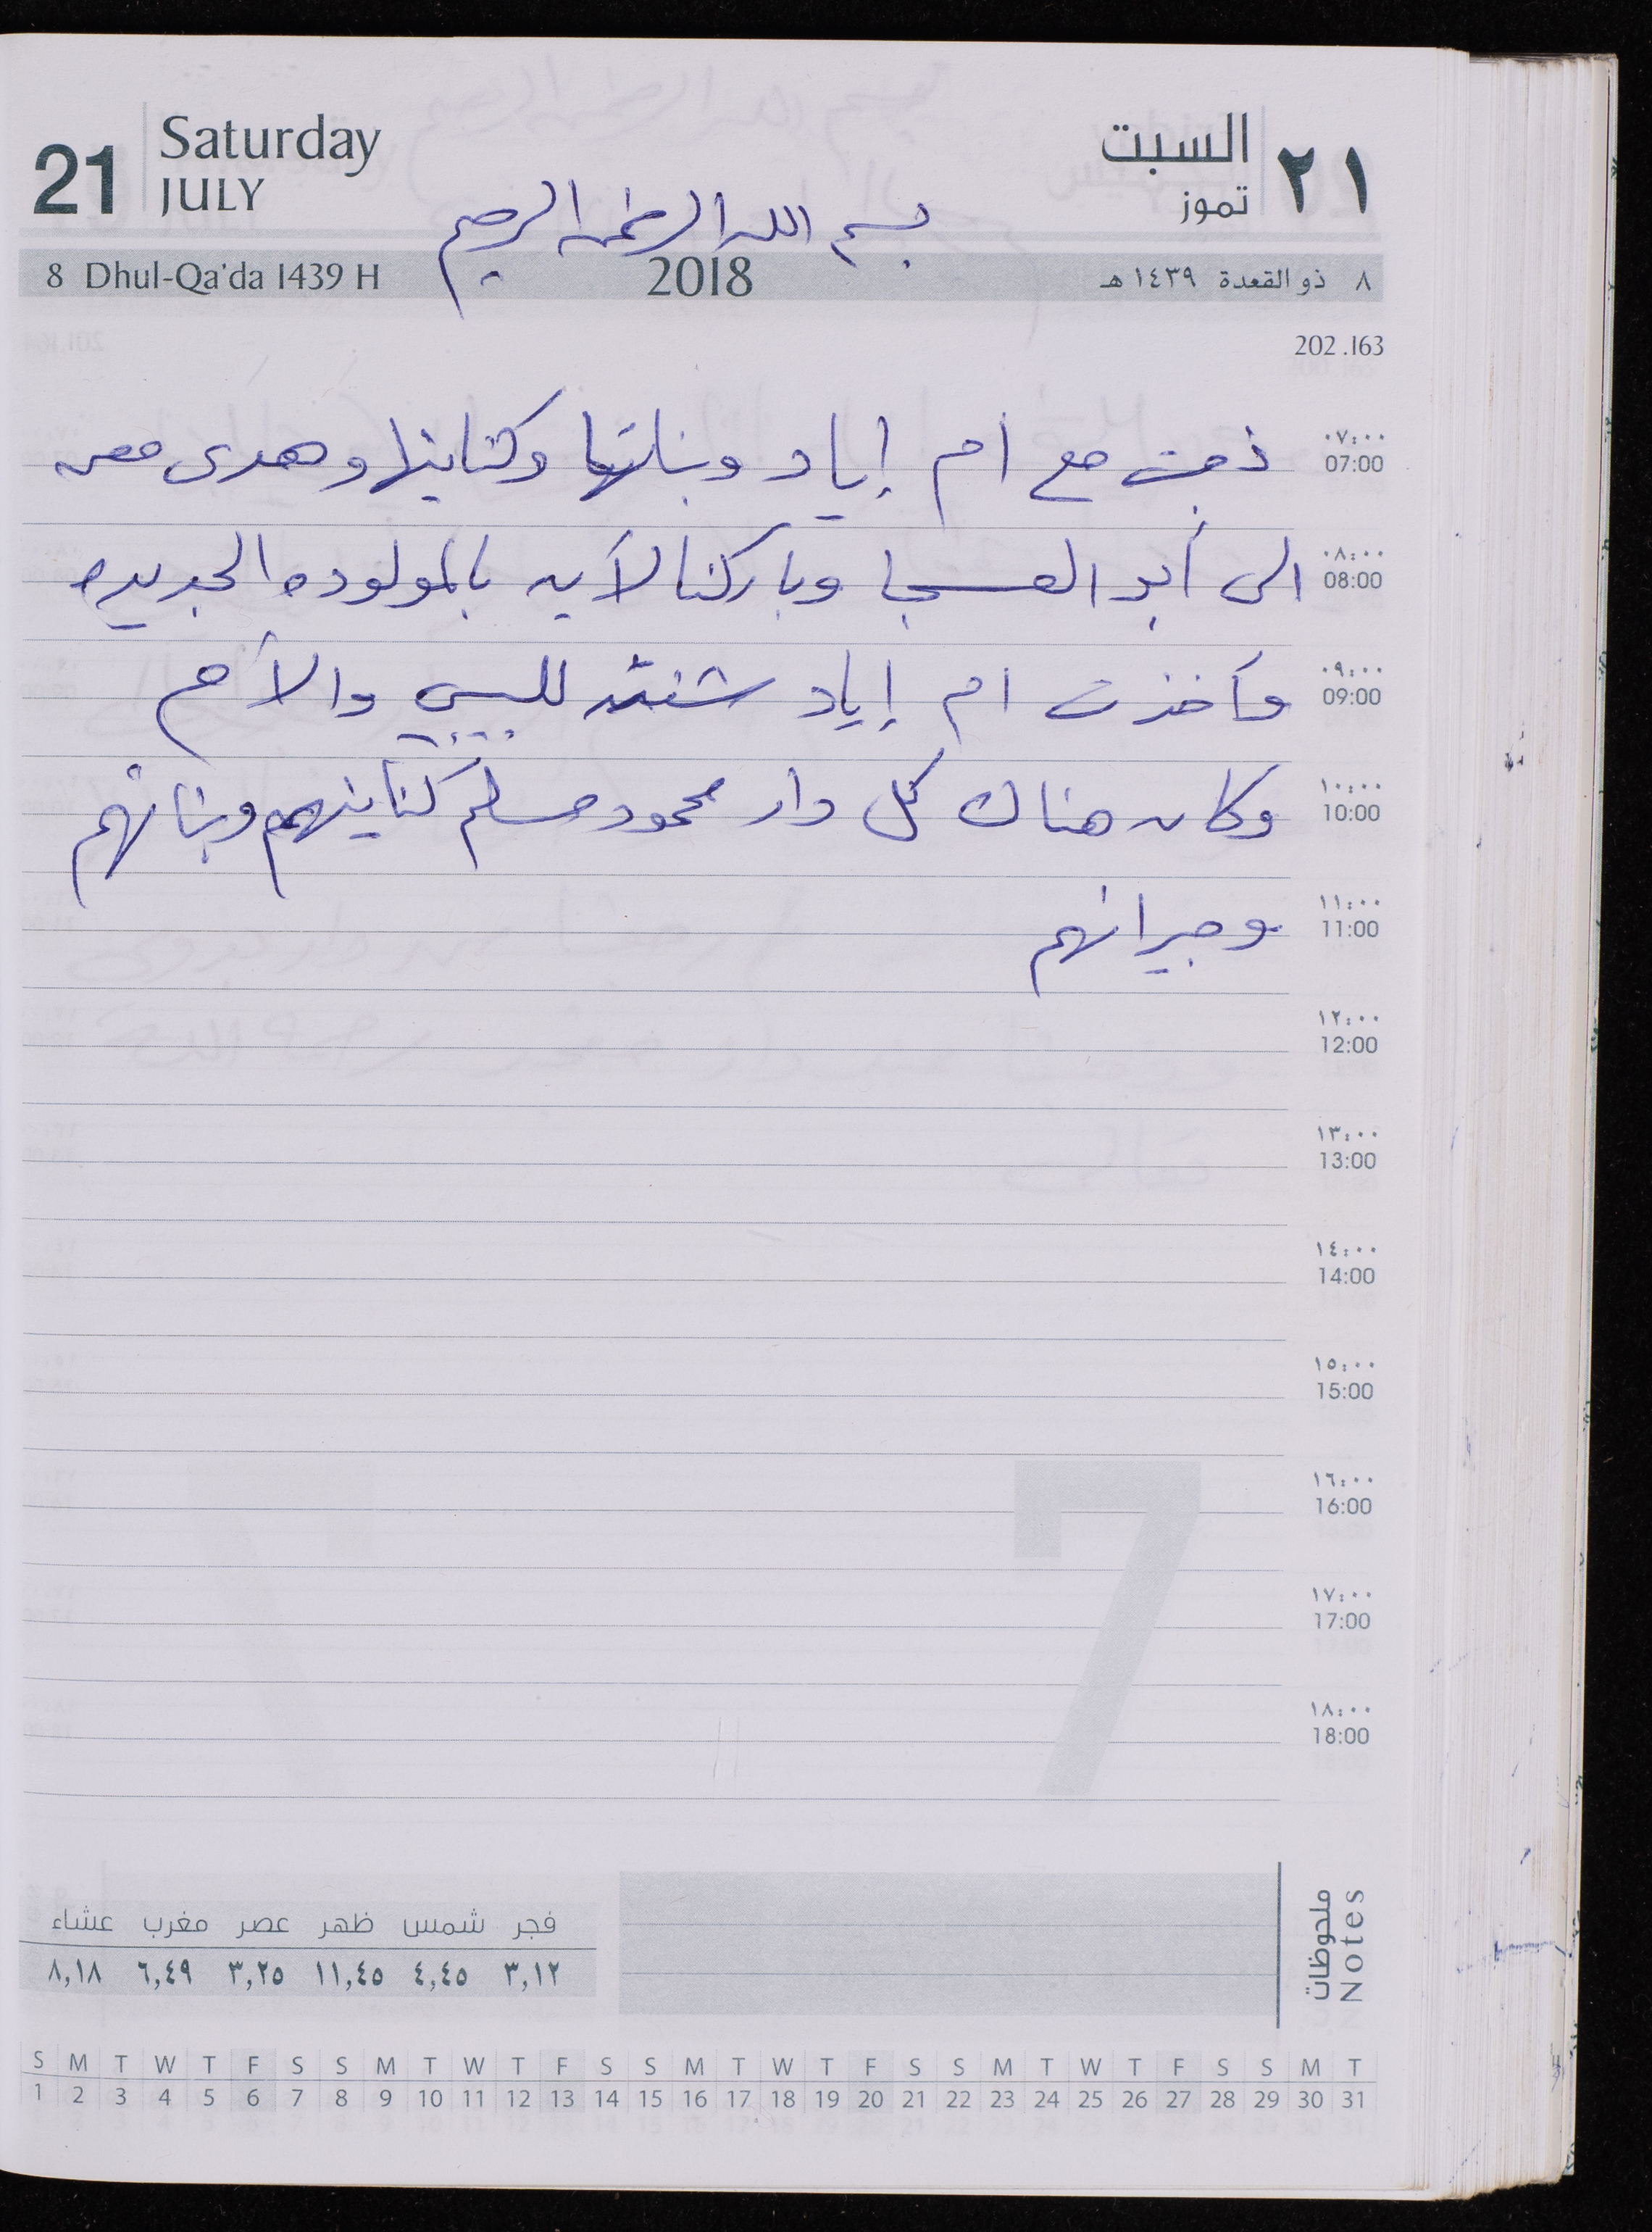 21 Saturday JULY
السبت ٢١ تموز
بسم الله الرحمن الرحيم
8 Dhul-Qa'da 1439 H 2018 ٨ ذو القعدة ١٤٣٩ هـ
202 .163
٠٧:٠٠ 07:00 ذهبت مع أم إياد وبناتها وكناينها وهدى معي
٠٨:٠٠ 08:00 الى أبو العسجا وباركنا لأيه بالمولوده الجديده
٠٩:٠٠ 09:00 وأخذت ام إياد شنته للبيبي والأم
١٠:٠٠ 10:00 وكان هناك كل دار محمود مسلم كناينهم وبناتهم
١١:٠٠ 11:00 وجيرانهم
١٢:٠٠ 12:00
١٣:٠٠ 13:00
١٤:٠٠ 14:00
١٥:٠٠ 15:00
١٦:٠٠ 16:00
١٧:٠٠ 17:00
١٨:٠٠ 18:00
7
ملحوظات Notes
فجر شمس ظهر عصر مغرب عشاء
٣,١٢ ٤,٤٥ ١١,٤٥ ٣,٢٥ ٦,٤٩ ٨,١٨
S M T W T F S S M T W T F S S M T W T F S S M T W T F S S M T
1 2 3 4 5 6 7 8 9 10 11 12 13 14 15 16 17 18 19 20 21 22 23 24 25 26 27 28 29 30 31